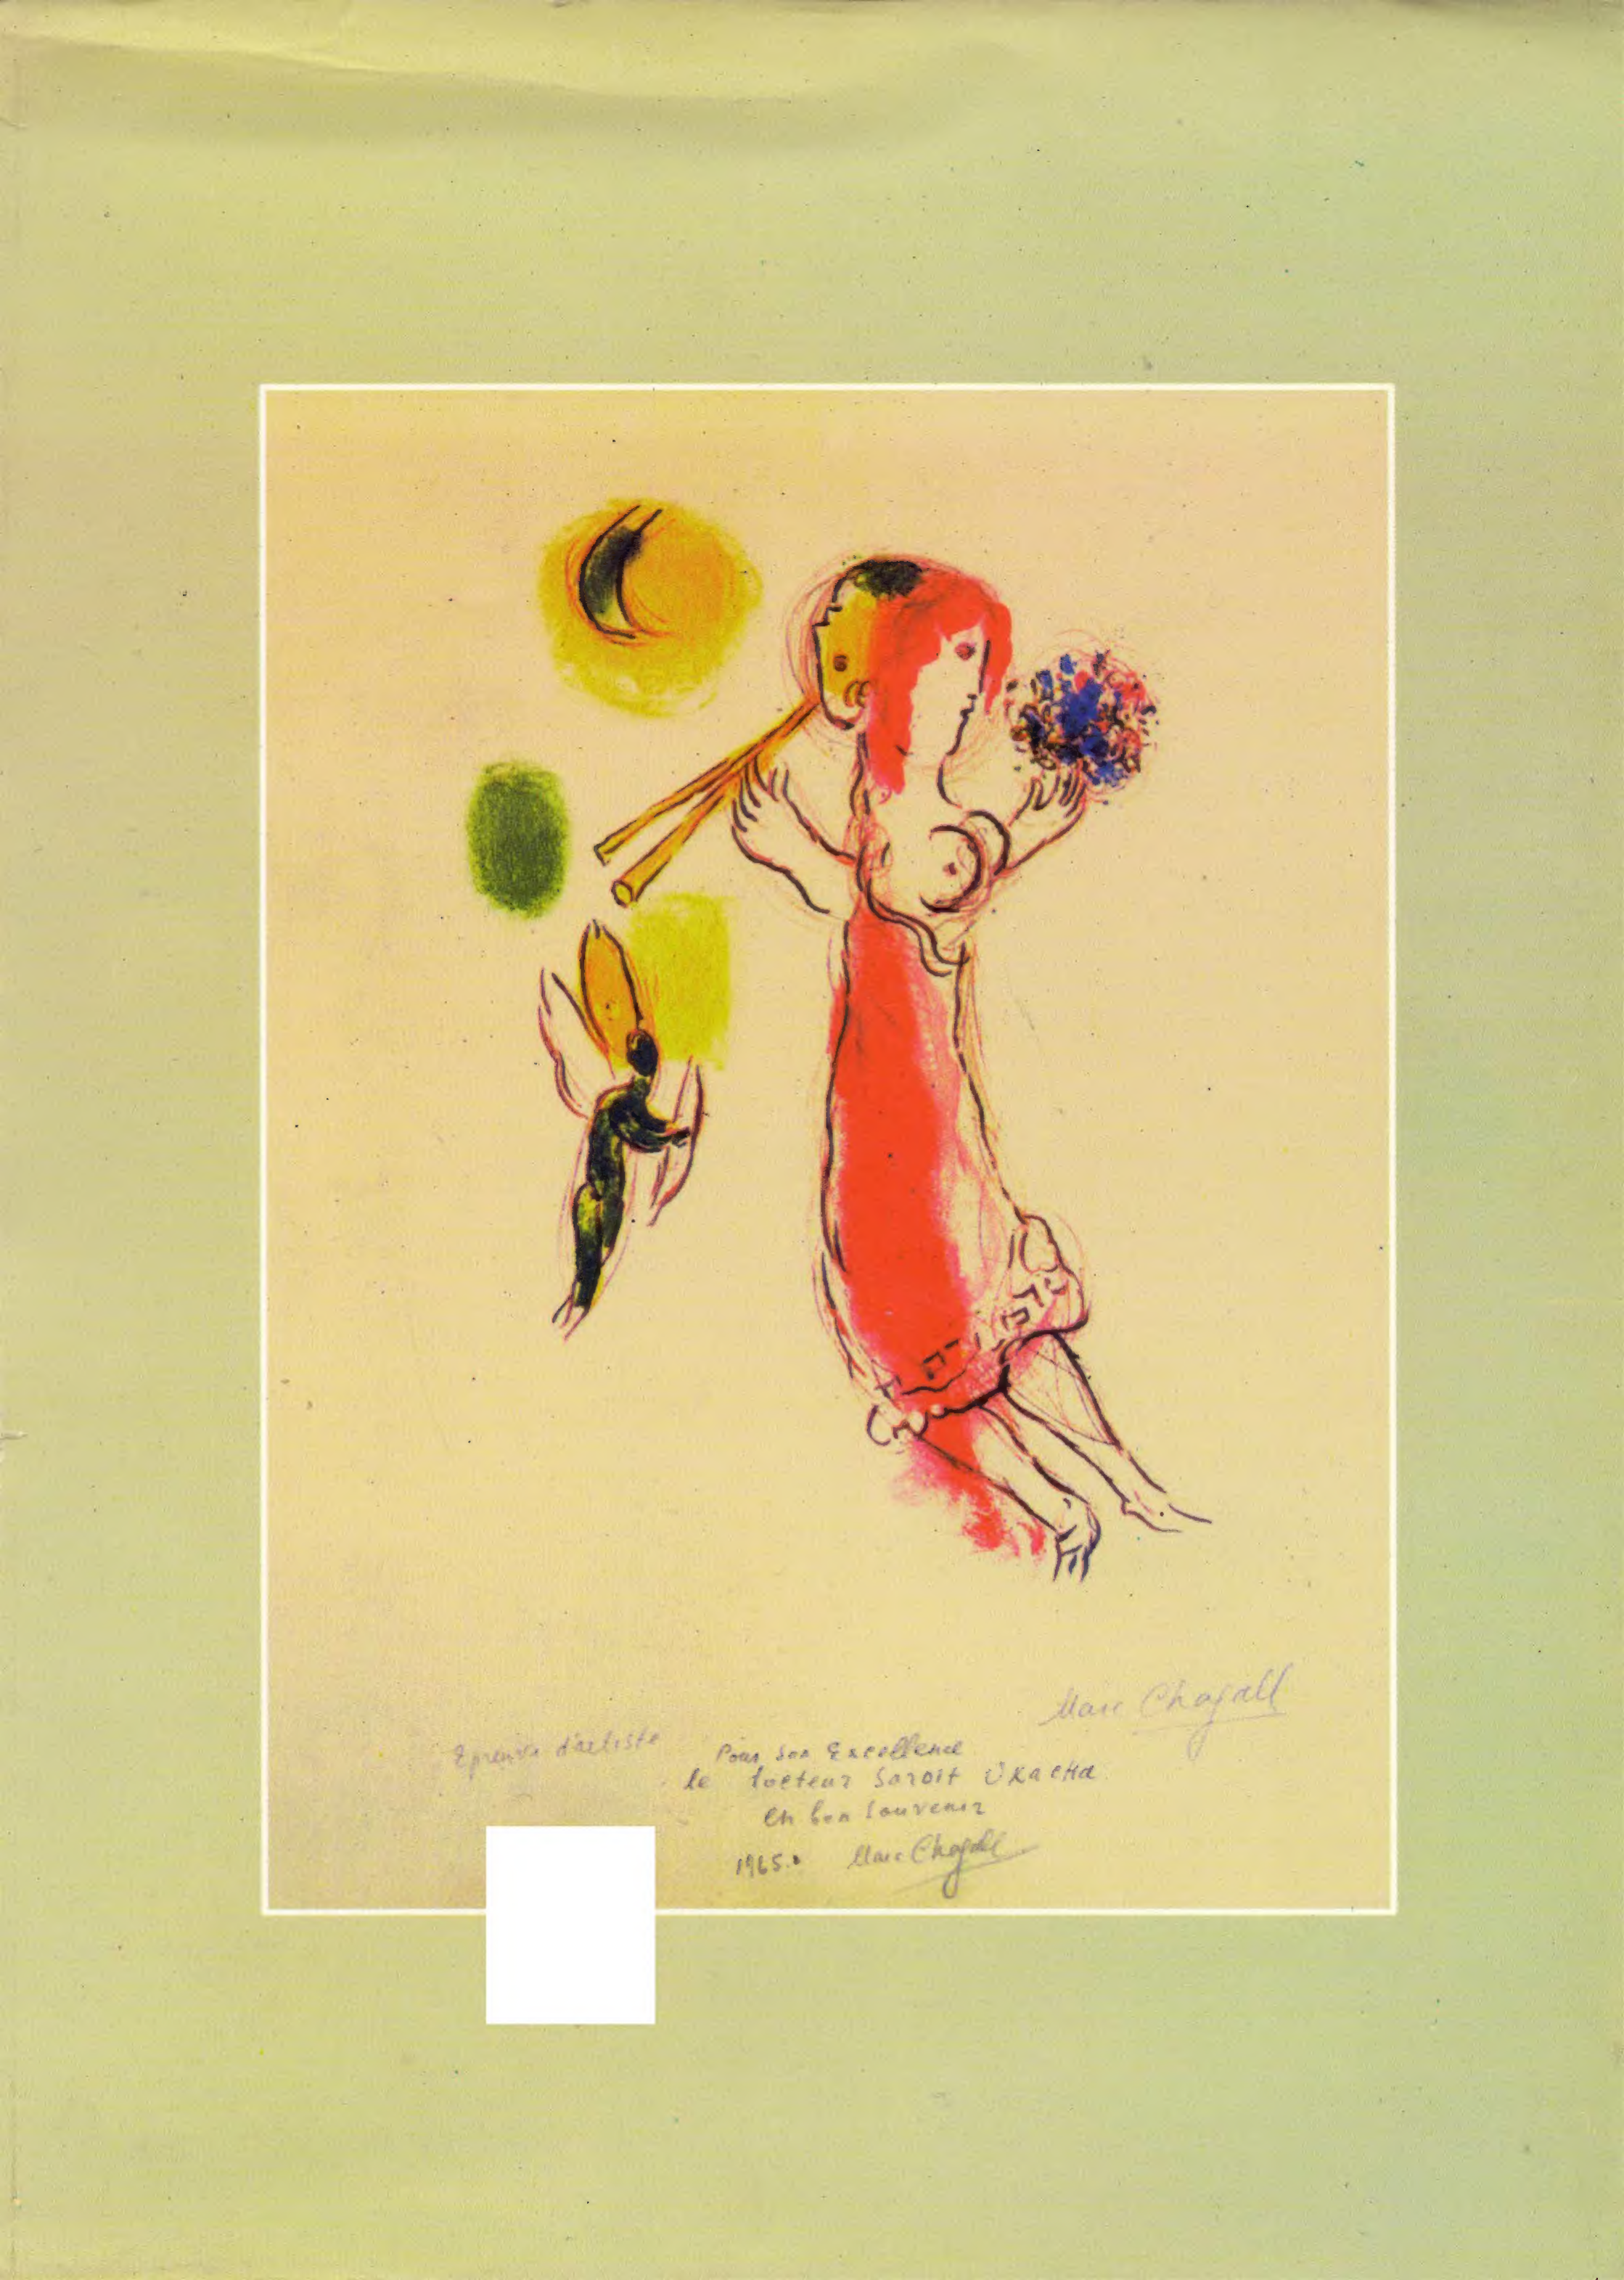 Marc Chagall
Epreuve d'artiste
Pour Son Excellence
le docteur Saroit Ukacha
En bon souvenir
1965. Marc Chagall